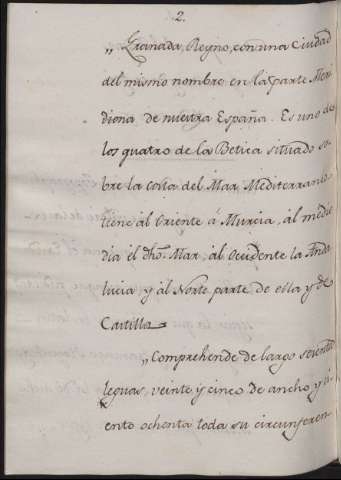 2.
„Granada, Reyno, con una Ciudad
del mismo nombre en la parte Meri
diona de nuestra España. Es uno de
los quatro de la Betica situado so-
bre la costa del Mar Mediterraneo
tiene al Oriente á Murcia, al medio
dia él dho. Mar, al Ocidente la Anda
lucia, y al Norte parte de ella y de
Castilla.
„Comprehende de largo setenta
leguas, veinte y cinco de ancho y ci
ento ochenta toda su circunferen-